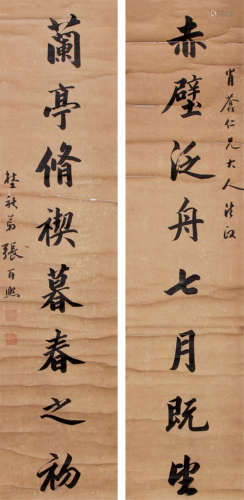 肖仁兄大人法政
赤壁泛舟七月既望
蘭亭脩禊暮春之初
埜秋弟張百熙